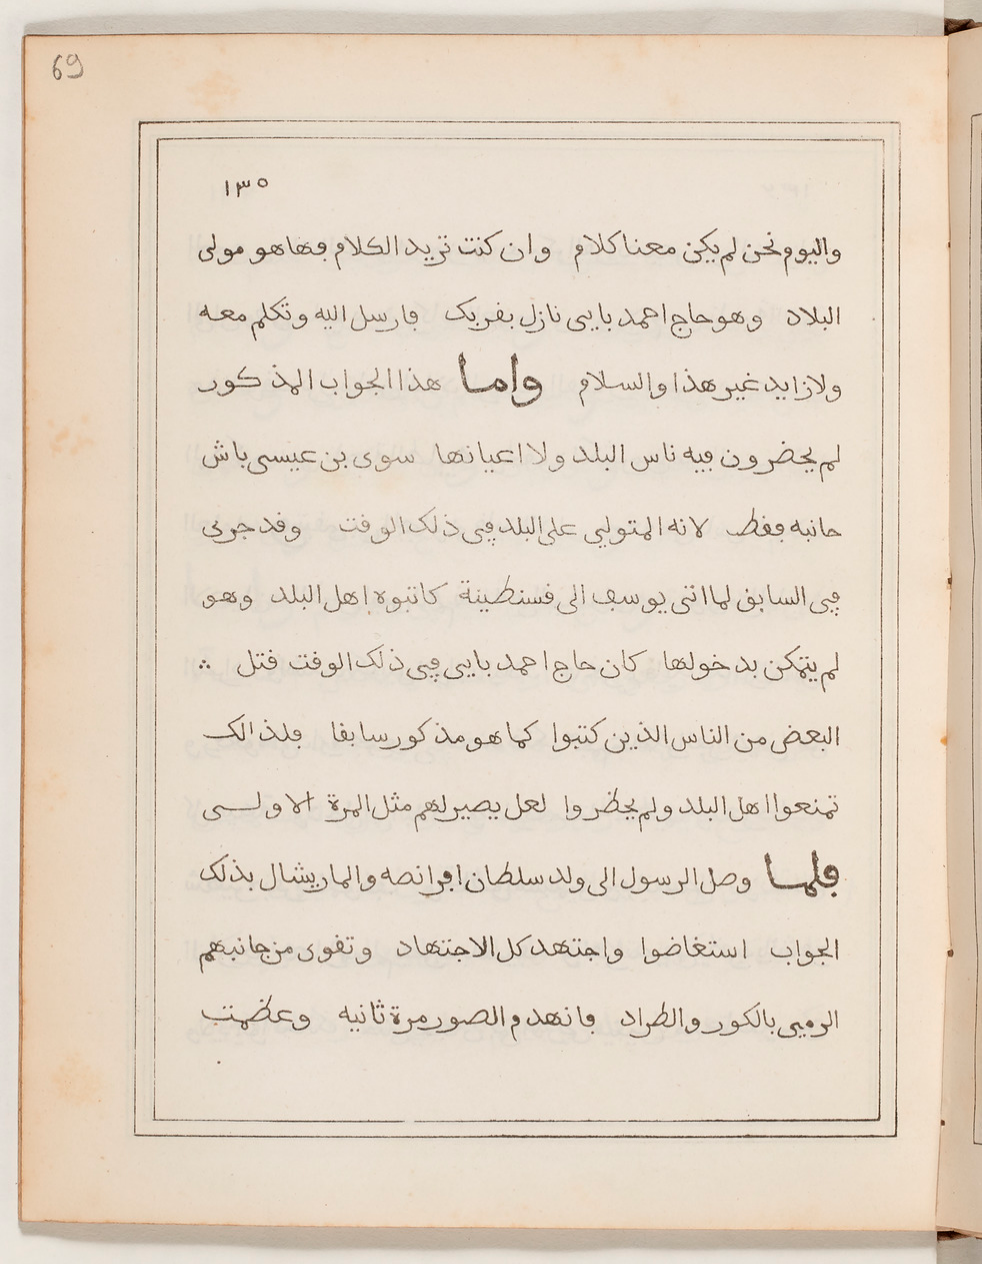 69
١٣٥
واليوم نحن لم يكن معنا كلام وان كنت تريد الكلام فها هو مولى
البلاد وهو حاج احمد بايى نازل بفربك فارسل اليه وتكلم معه
ولا زايد غير هذا والسلام واما هذا الجواب المذكور
لم يحضرون فيه ناس البلد ولا اعيانها سوى بن عيسى باش
حانبه فقط لانه المتولي على البلد في ذلك الوقت وقد جرى
في السابق لما اتى يوسف الى قسنطينة كاتبوه اهل البلد وهو
لم يتمكن بدخولها كان حاج احمد بايى في ذلك الوقت قتل ∴
البعض من الناس الذين كتبوا كما هو مذكور سابقا فلذالك
تمنعوا اهل البلد ولم يحظروا لعل يصير لهم مثل المرة الاولى
فلما وصل الرسول الى ولد سلطان افرانصه والماريشال بذلك
الجواب استغاضوا واجتهد كل الاجتهاد وتقوى من جانبهم
الرمي بالكور والطراد فانهدم الصور مرة ثانيه وعظمت